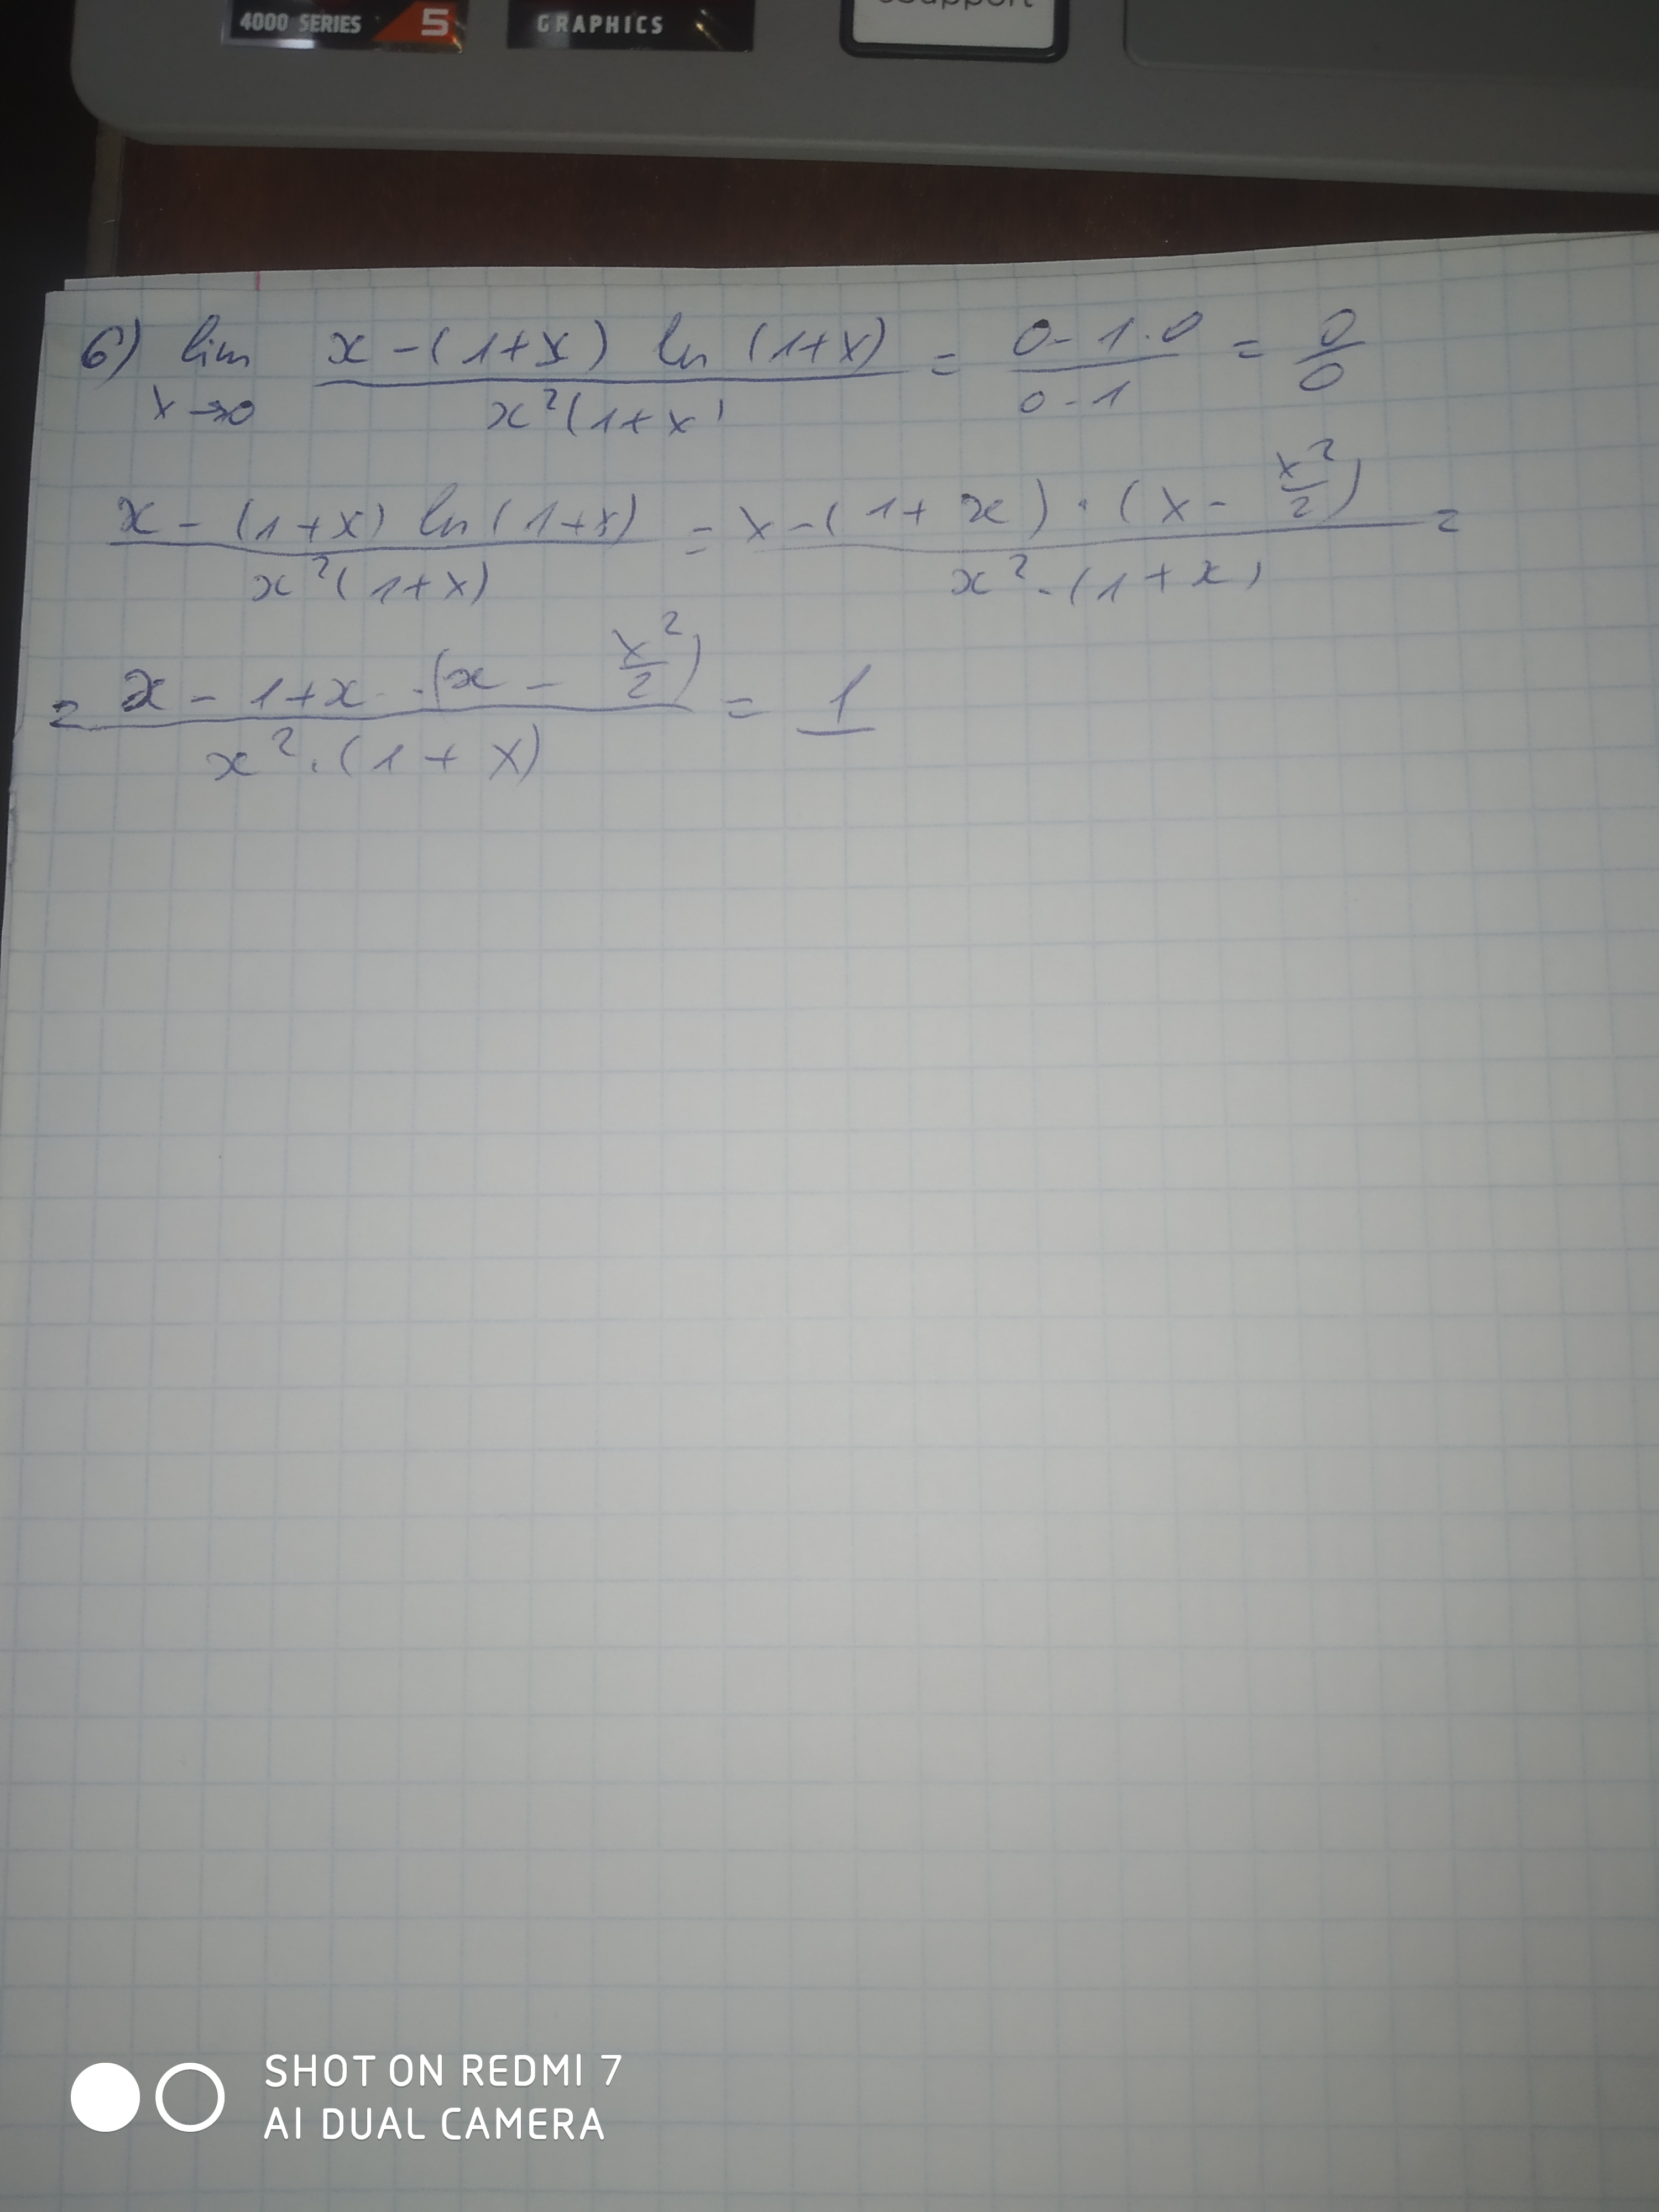 4000 SERIES 5 GRAPHICS
6) lim x→0 x-(1+x) ln (1+x) / x²(1+x) = 0-1·0 / 0·1 = 0/0
x-(1+x) ln(1+x) / x²(1+x) = x-(1+x)·(x - x²/2) / x²·(1+x) =
= x-1+x·(x - x²/2) / x²·(1+x) = 1
SHOT ON REDMI 7
AI DUAL CAMERA